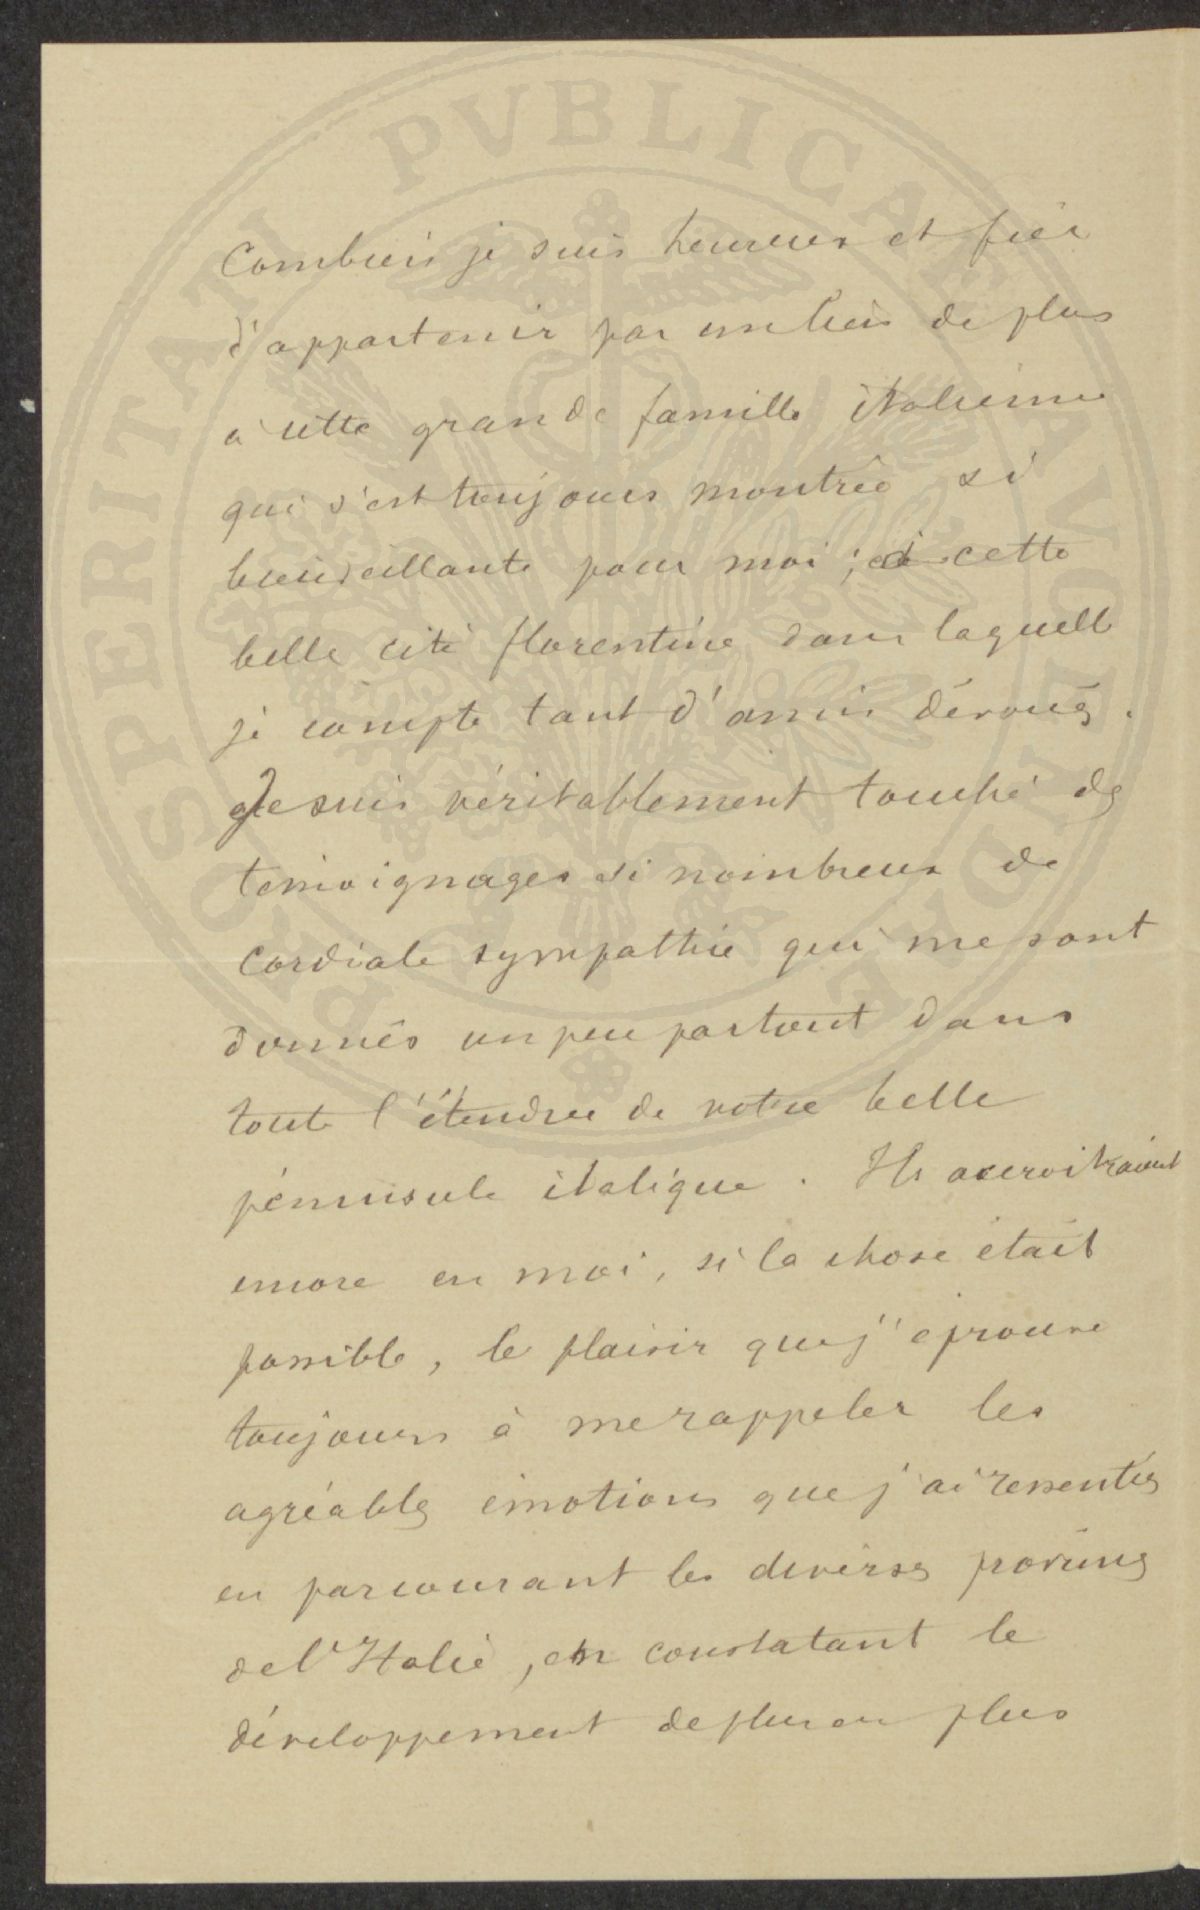 PROSPERITATI PVBLICAE AVGENDAE
Combien je suis heureux et fier
d'appartenir par un lien de plus
à cette grande famille italienne
qui s'est toujours montrée si
bienveillante pour moi ; à cette
belle cité florentine dans laquelle
je compte tant d'amis dévoués.
Je suis véritablement touché des
témoignages si nombreux de
cordiale sympathie qui me sont
donnés un peu partout dans
toute l'étendue de votre belle
péninsule italique. Ils accroitraient
encore en moi, si la chose était
possible, le plaisir que j'éprouve
toujours à me rappeler les
agréables émotions que j'ai ressenties
en parcourant les diverses provinces
de l'Italie, en constatant le
développement de plus en plus